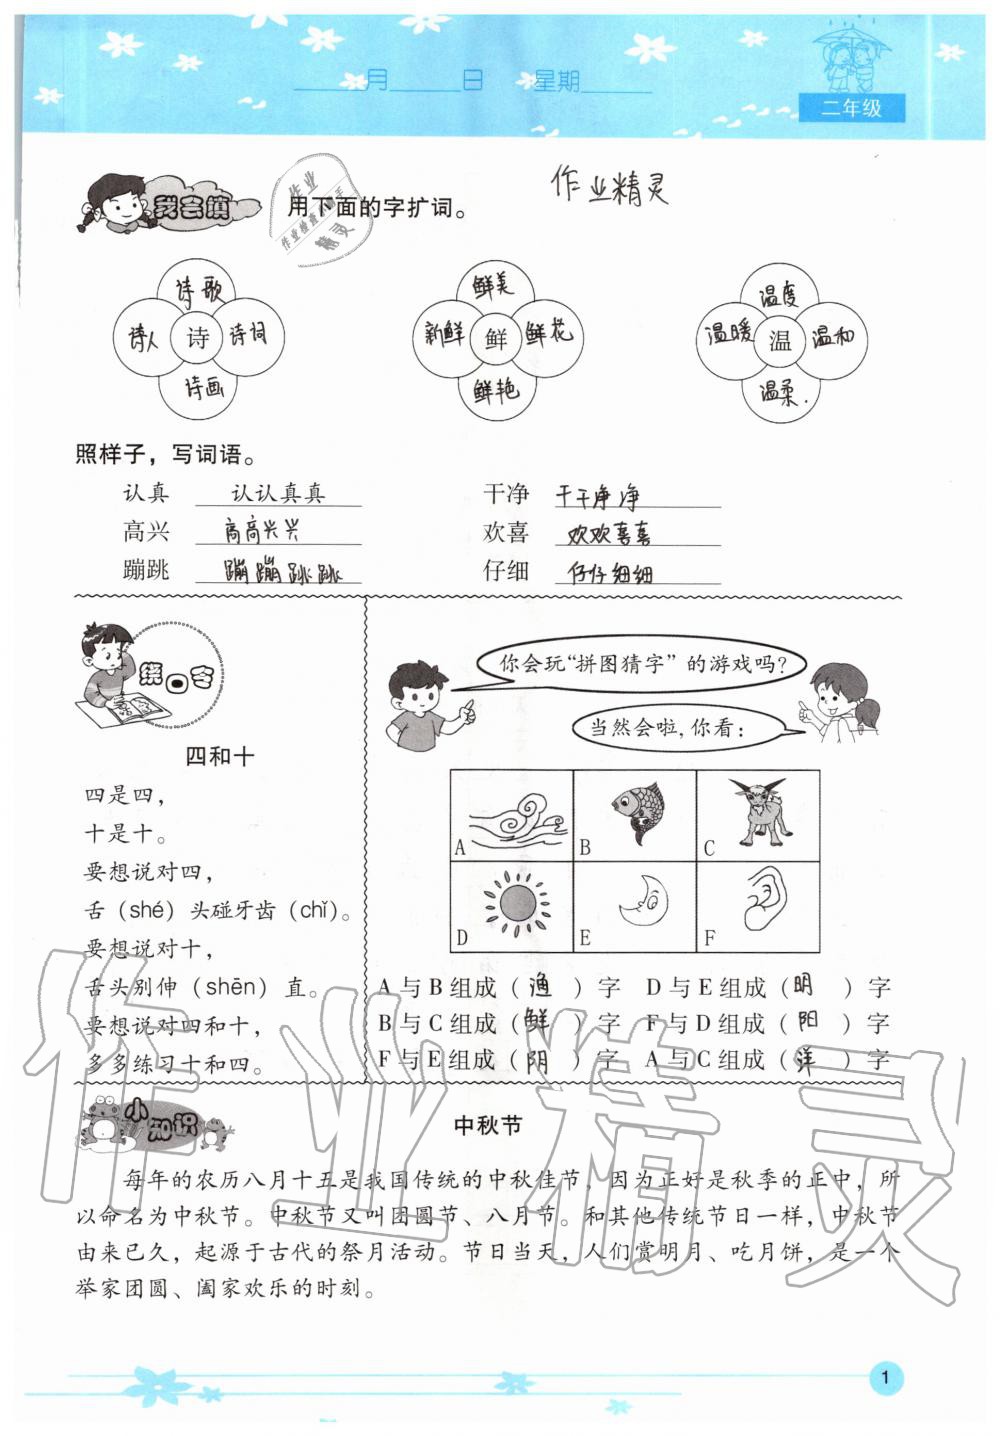 ____月____日 星期____
二年级
我会填 用下面的字扩词。
作业精灵
诗歌 诗人 诗 诗词 诗画
鲜美 新鲜 鲜 鲜花 鲜艳
温度 温暖 温 温和 温柔.
照样子，写词语。
认真 认认真真 干净 干干净净
高兴 高高兴兴 欢喜 欢欢喜喜
蹦跳 蹦蹦跳跳 仔细 仔仔细细
练口令
四和十
四是四，
十是十。
要想说对四，
舌（shé）头碰牙齿（chǐ）。
要想说对十，
舌头别伸（shēn）直。
要想说对四和十，
多多练习十和四。
你会玩“拼图猜字”的游戏吗？
当然会啦，你看：
A B C
D E F
A与B组成（渔）字 D与E组成（明）字
B与C组成（鲜）字 F与D组成（阳）字
F与E组成（阴）字 A与C组成（洋）字
小知识
中秋节
每年的农历八月十五是我国传统的中秋佳节，因为正好是秋季的正中，所
以命名为中秋节。中秋节又叫团圆节、八月节。和其他传统节日一样，中秋节
由来已久，起源于古代的祭月活动。节日当天，人们赏明月、吃月饼，是一个
举家团圆、阖家欢乐的时刻。
作业精灵
1